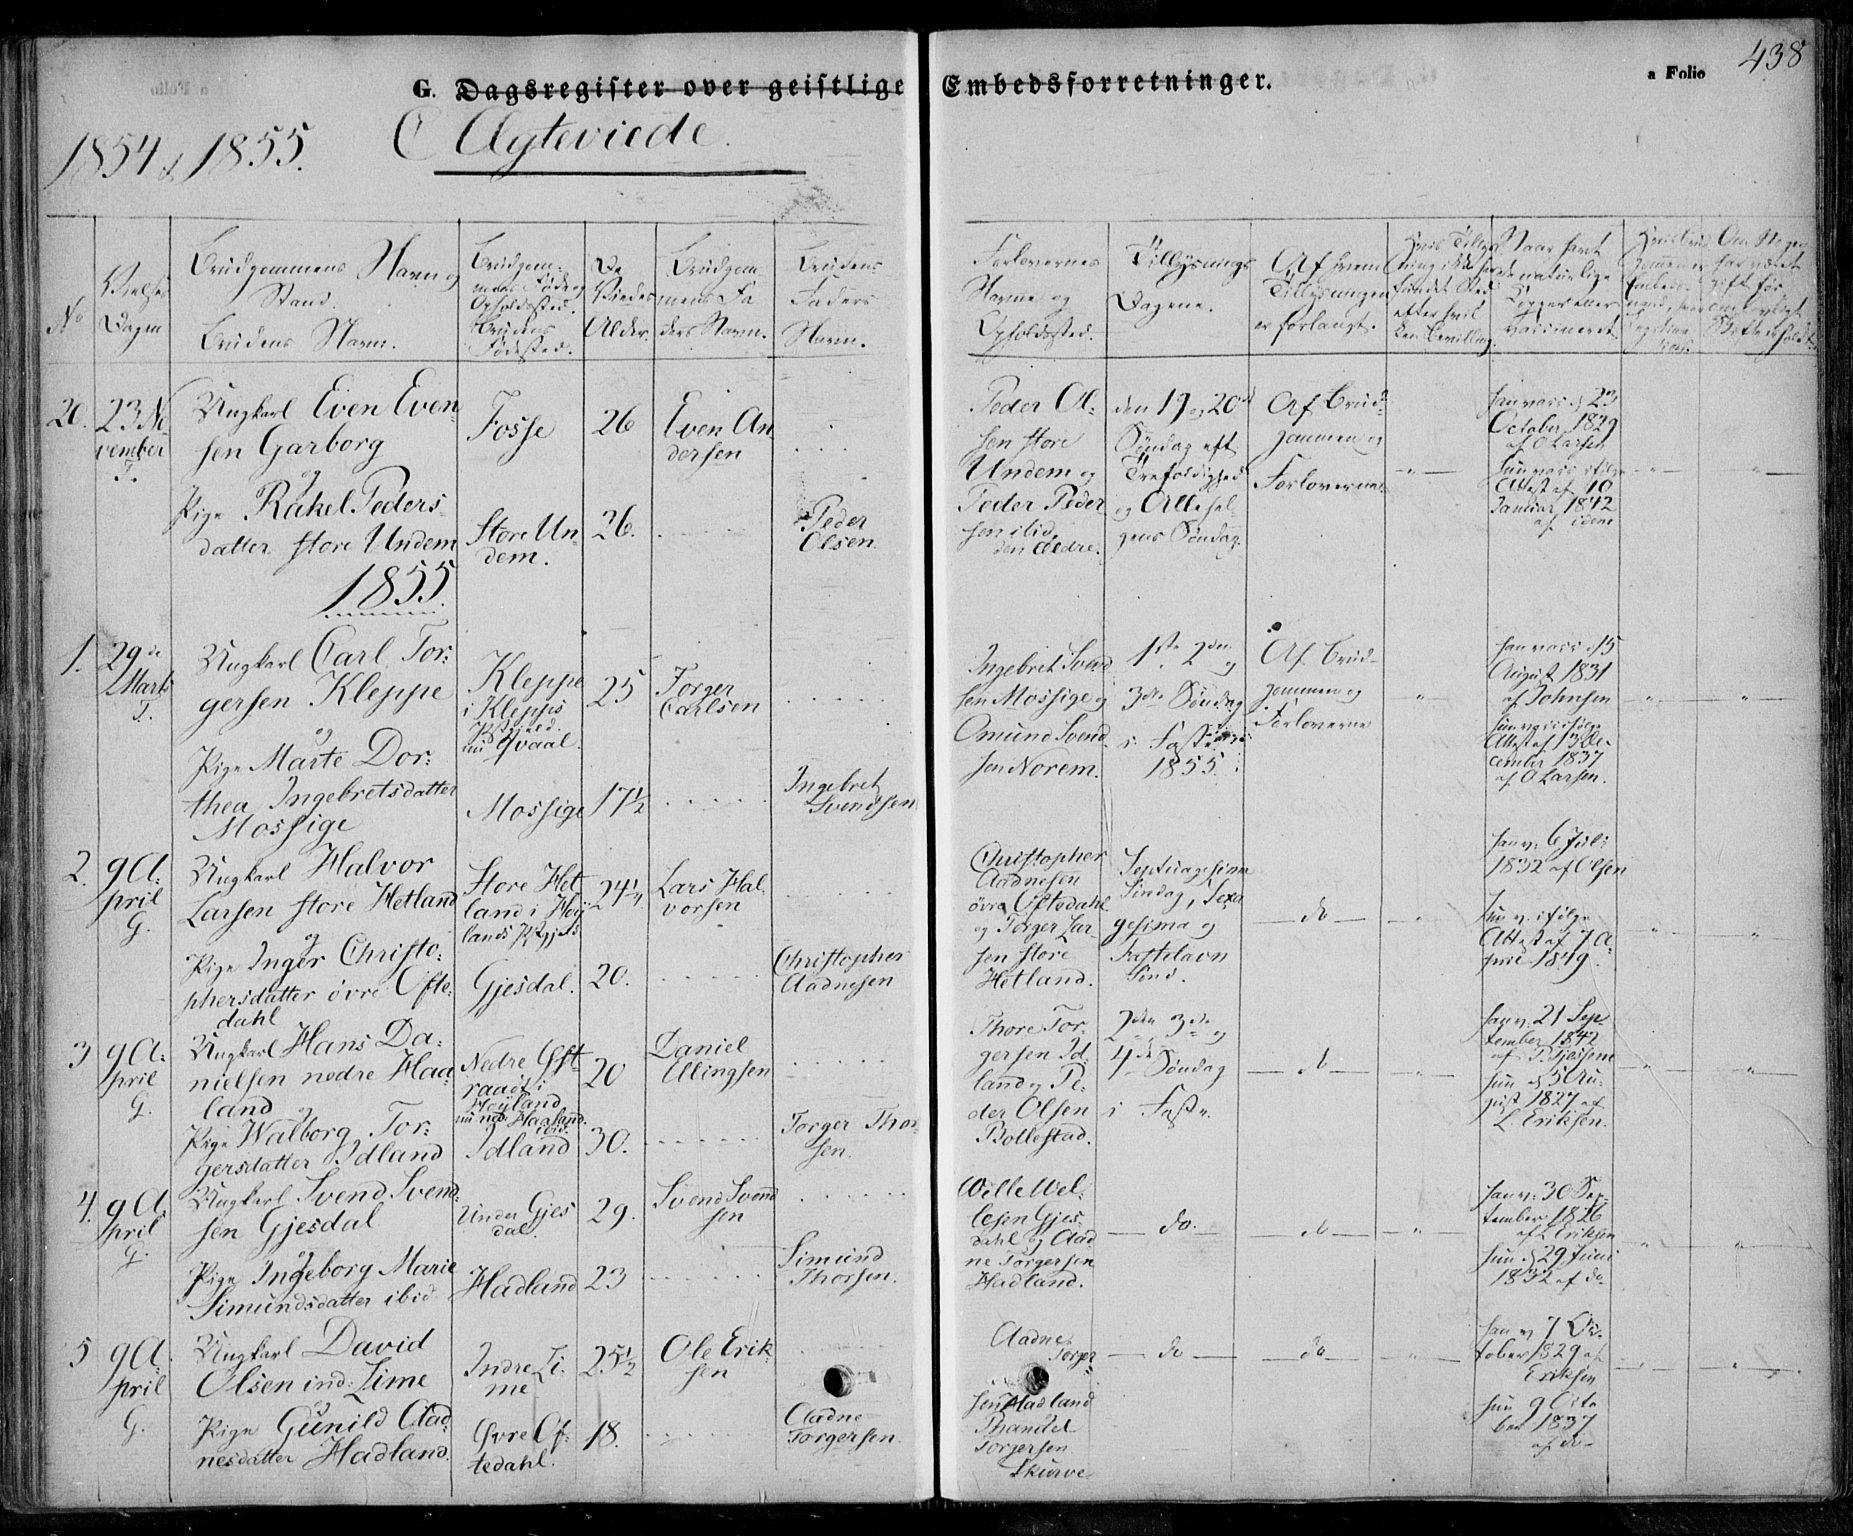 438
a Folio
G. Dagsregister over geistlige Embedsforretninger.
1854 & 1855. C Ægteviede.
No
Vielses Dagen
Brudgommens Navn og
Stand.
Brudens Navn.
Brudgom-
mens Føde og
Opholdssted.
Brudens
Fødested.
De
Viedes
Alder.
Brudgom
mens Fa
ders Navn.
Brudens
Faders
Navn.
Forlovernes
Navne og
Opholdssted.
Tillysnings
Dagene.
Af hvem
Tillysningen
er forlangt.
Naar havt
de naturlige
Kopper eller
vaccineret
20. 23 No
vember
T.
Ungkarl Even Even
sen Garborg
og
Pige Rakel Peders
datter store Undem
Fosse
Store Un
dem.
26
26.
Even An
dersen
Peder
Olsen
Peder Ol-
sen store
Undem og
Peder Peder
sen ibid.
den Ældre.
den 19 og 20d
Søndag eft
Trefoldighed
og Allehel
gens Søndag.
Af Brud
gommen og
Forloverne
han vacc. d. 23
October 1829
af O Larsen
hun vacc. ifølge
Attest af 10
Januar 1842
af idem
1855.
1. 29de
Marts
T.
Ungkarl Carl Tor-
gersen Kleppe
og
Pige Marte Dor-
thea Ingebretsdatter
Mossige
Kleppe
i Klepps
Pstgjeld.
nu Qvaal.
Mossige
25
17½
Torger
Carlsen
Ingebret
Svendsen
Ingebret Svend
sen Mossige og
Omund Svend
sen Norem.
1ste 2den og
3die Søndag
i Faste
1855.
Af Brud-
gommen og
Forloverne
han vacc. 15
August 1831
af Johnsen
hun vacc. ifølge
Attest af 13 De-
cember 1837
af O Larsen.
2. 9 A-
pril
G.
Ungkarl Halvor
Larsen store Hetland
og
Pige Inger Christo-
phersdatter övre Ofte-
dahl
Store Het
land i Høi
lands Pstgjeld
Gjesdal.
20.
Lars Hal
vorsen
Christopher
Aadnesen
Christopher
Aadnesen
övre Oftedahl
og Torger Lar-
sen store
Hetland.
Septuagesima
Søndag, Sexa
gesima og
Fastelavn
Sønd.
do
han v. 6 Juli
1832 af Olsen
hun v. ifølge
Attest af 7 A
pril 1849.
3 9 A-
pril
G.
Ungkarl Hans Da-
nielsen nedre Haa
land
og
Pige Walborg Tor-
gersdatter Idland
Nedre
i
Høyland
nu ned. Haaland
ibid.
Idland
20
30.
Daniel
Ellingsen
Torger Thor
sen.
Thore Tor-
gersen Id-
land og Pe-
der Olsen
Bollestad.
2den 3de og
4de Søndag
i Faste.
do
han v. 21 Sep
tember 1842
af
hun d. 5 Au-
gust 1827 af
L Eriksen.
4. 9 A-
pril
G.
Ungkarl Svend Svend
sen Gjesdal
og
Pige Ingeborg Marie
Simundsdatter ibid
Under Gjes
dal.
Hadland
29.
23
Svend Svend
sen
Simund
Thorsen.
Welle Wel-
lesen Gjes-
dahl og Aad
ne Torgersen
Hadland.
do.
do
han v. 30 Sep
tember 1826
af L Eriksen
hun d. 29 Juni
1832 af do
5 9 A
pril
G.
Ungkarl David
Olsen ind. Lime
og
Pige Gunild Aad
nesdatter Hadland.
Indre Li-
me
Øvre Of-
tedahl.
25½
18.
Ole Erik-
sen
Aadne
Torgersen.
Aadne
Torger
sen Hadland
Torgersen
Skurve
do
do
han v 7 Oc-
tober 1829 af
Eriksen
hun 9 Octo
ber 1837
af do